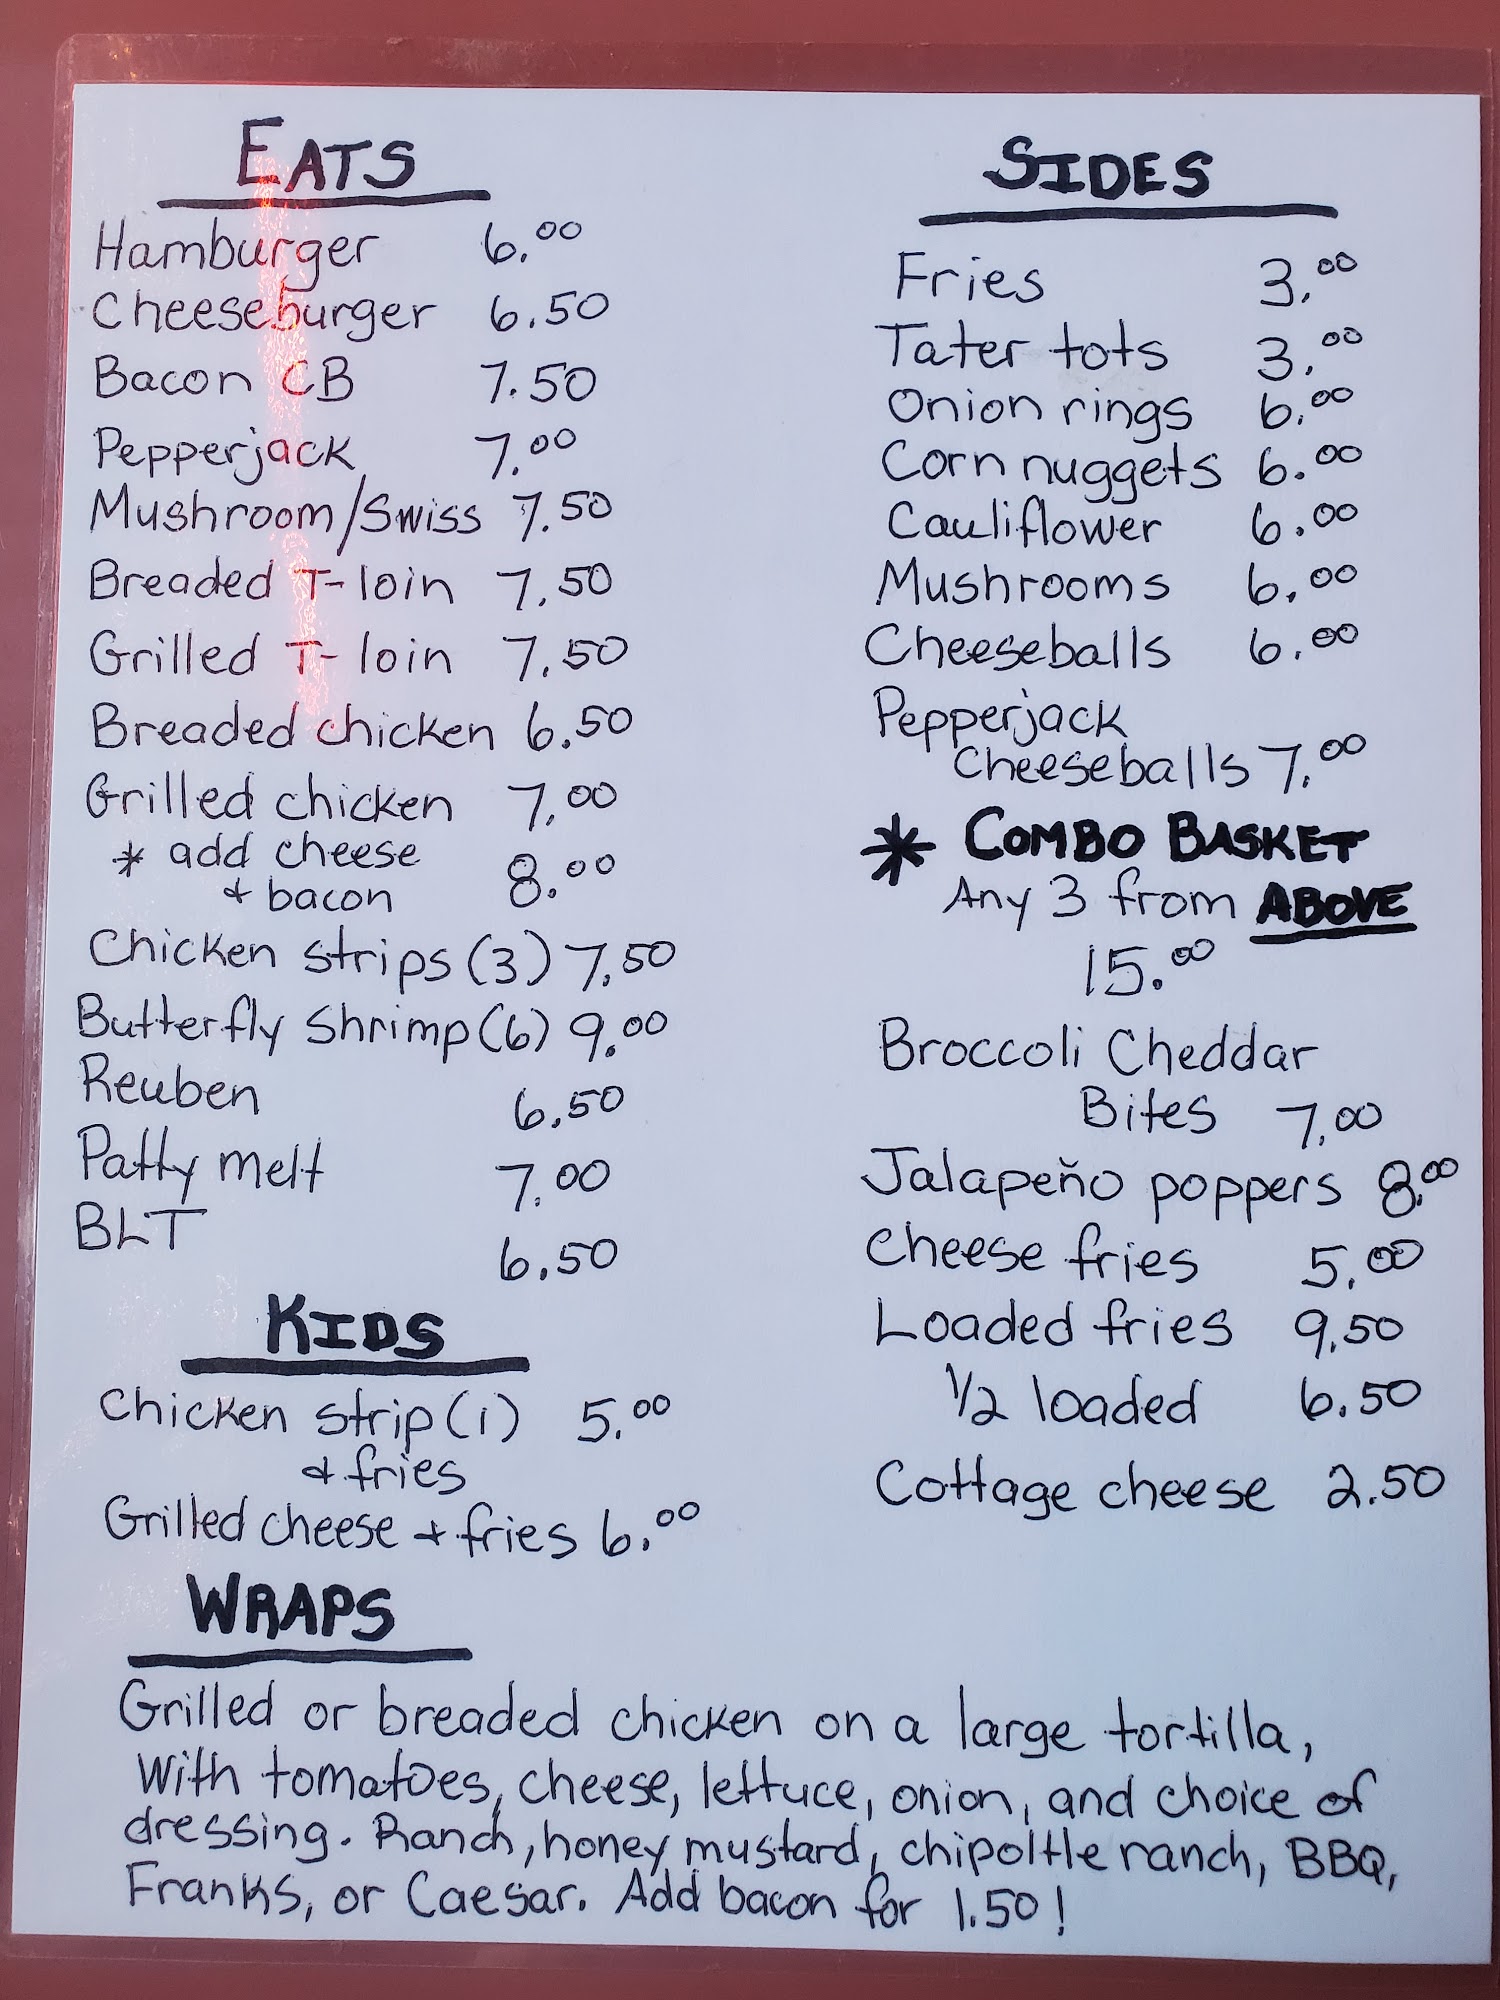 EATS
Hamburger 6.00
Cheeseburger 6.50
Bacon CB 7.50
Pepperjack 7.00
Mushroom/Swiss 7.50
Breaded T-loin 7.50
Grilled T-loin 7.50
Breaded chicken 6.50
Grilled chicken 7.00
* add cheese
& bacon 8.00
Chicken strips (3) 7.50
Butterfly Shrimp (6) 9.00
Reuben 6.50
Patty melt 7.00
BLT 6.50
KIDS
Chicken strip (1) 5.00
& fries
Grilled cheese & fries 6.00
SIDES
Fries 3.00
Tater tots 3.00
Onion rings 6.00
Corn nuggets 6.00
Cauliflower 6.00
Mushrooms 6.00
Cheeseballs 6.00
Pepperjack
Cheeseballs 7.00
* COMBO BASKET
Any 3 from ABOVE
15.00
Broccoli Cheddar
Bites 7.00
Jalapeño poppers 8.00
Cheese fries 5.00
Loaded fries 9.50
1/2 loaded 6.50
Cottage cheese 2.50
WRAPS
Grilled or breaded chicken on a large tortilla,
With tomatoes, cheese, lettuce, onion, and choice of
dressing. Ranch, honey mustard, chipoltle ranch, BBQ,
Franks, or Caesar. Add bacon for 1.50!